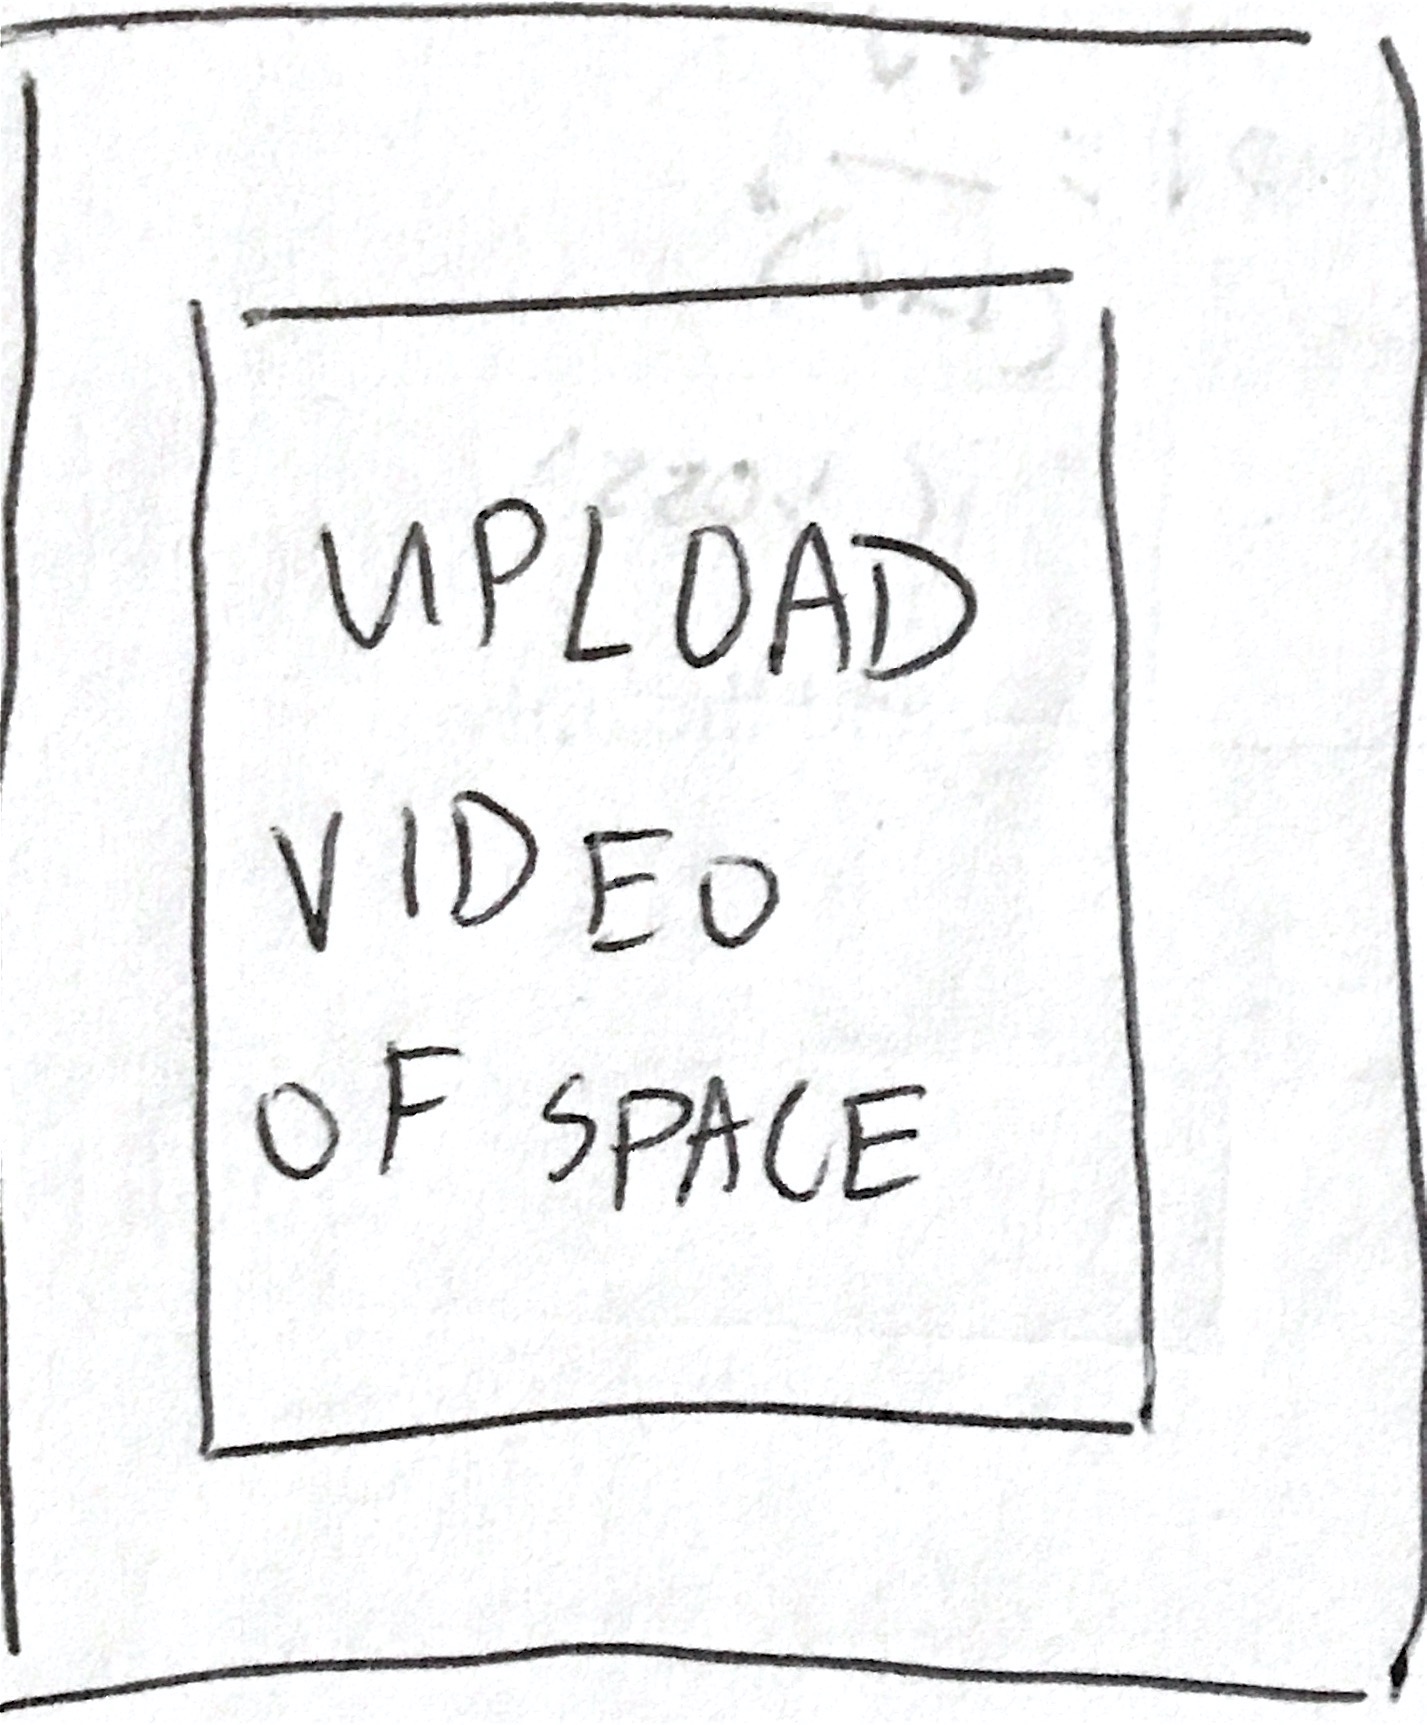 UPLOAD
VIDEO
OF SPACE